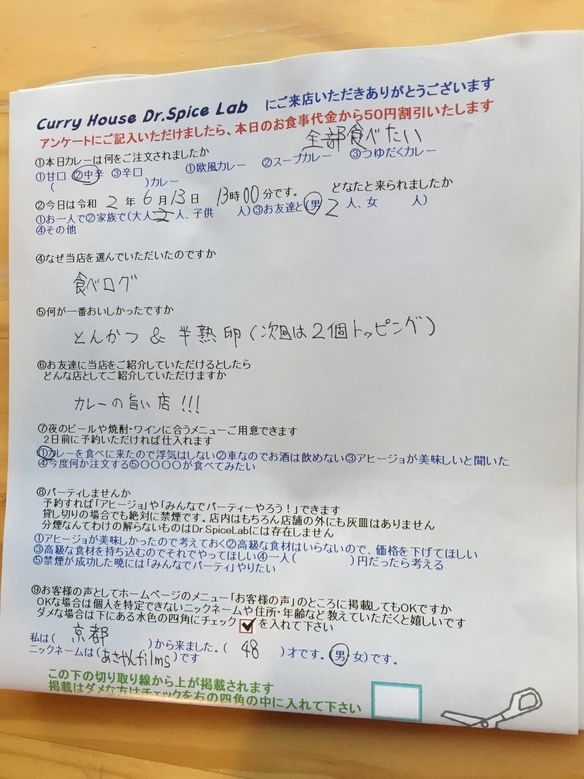 Curry House Dr.Spice Lab にご来店いただきありがとうございます
アンケートにご記入いただけましたら、本日のお食事代金から50円割引いたします
全部食べたい
①本日カレーは何をご注文されましたか
①甘口 ②中辛 ③辛口 ①欧風カレー ②スープカレー ③つゆだくカレー
( )カレー
②今日は令和 2 年 6 月 13 日 13時00分です。 どなたと来られましたか
①お一人で②家族で(大人 2 人、子供 人)③お友達と(男 2 人、女 人)
④その他
④なぜ当店を選んでいただいたのですか
食べログ
⑤何が一番おいしかったですか
とんかつ & 半熟卵 (次回は2個トッピング)
⑥お友達に当店をご紹介していただけるとしたら
どんな店としてご紹介していただけますか
カレーの旨い店!!!
⑦夜のビールや焼酎・ワインに合うメニューご用意できます
2日前に予約いただければ仕入れます
①カレーを食べに来たので浮気はしない②車なのでお酒は飲めない③アヒージョが美味しいと聞いた
④今度何か注文する⑤〇〇〇〇が食べてみたい
⑧パーティしませんか
予約すれば「アヒージョ」や「みんなでパーティーやろう!」できます
貸し切りの場合でも絶対に禁煙です。店内はもちろん店舗の外にも灰皿はありません
分煙なんてわけの解らないものはDr.SpiceLabには存在しません
①アヒージョが美味しかったので考えておく②高級な食材はいらないので、価格を下げてほしい
③高級な食材を持ち込むのでそれでやってほしい④一人( )円だったら考える
⑤禁煙が成功した暁には「みんなでパーティ」やりたい
⑨お客様の声としてホームページのメニュー「お客様の声」のところに掲載してもOKですか
OKな場合は個人を特定できないニックネームや住所・年齢など教えていただくと嬉しいです
ダメな場合は下にある水色の四角にチェック✔を入れて下さい
私は( 京都 )から来ました。( 48 )才です。(男 女)です。
ニックネームは(あきやんfilms)です
この下の切り取り線から上が掲載されます
掲載はダメな方はチェックを右の四角の中に入れて下さい